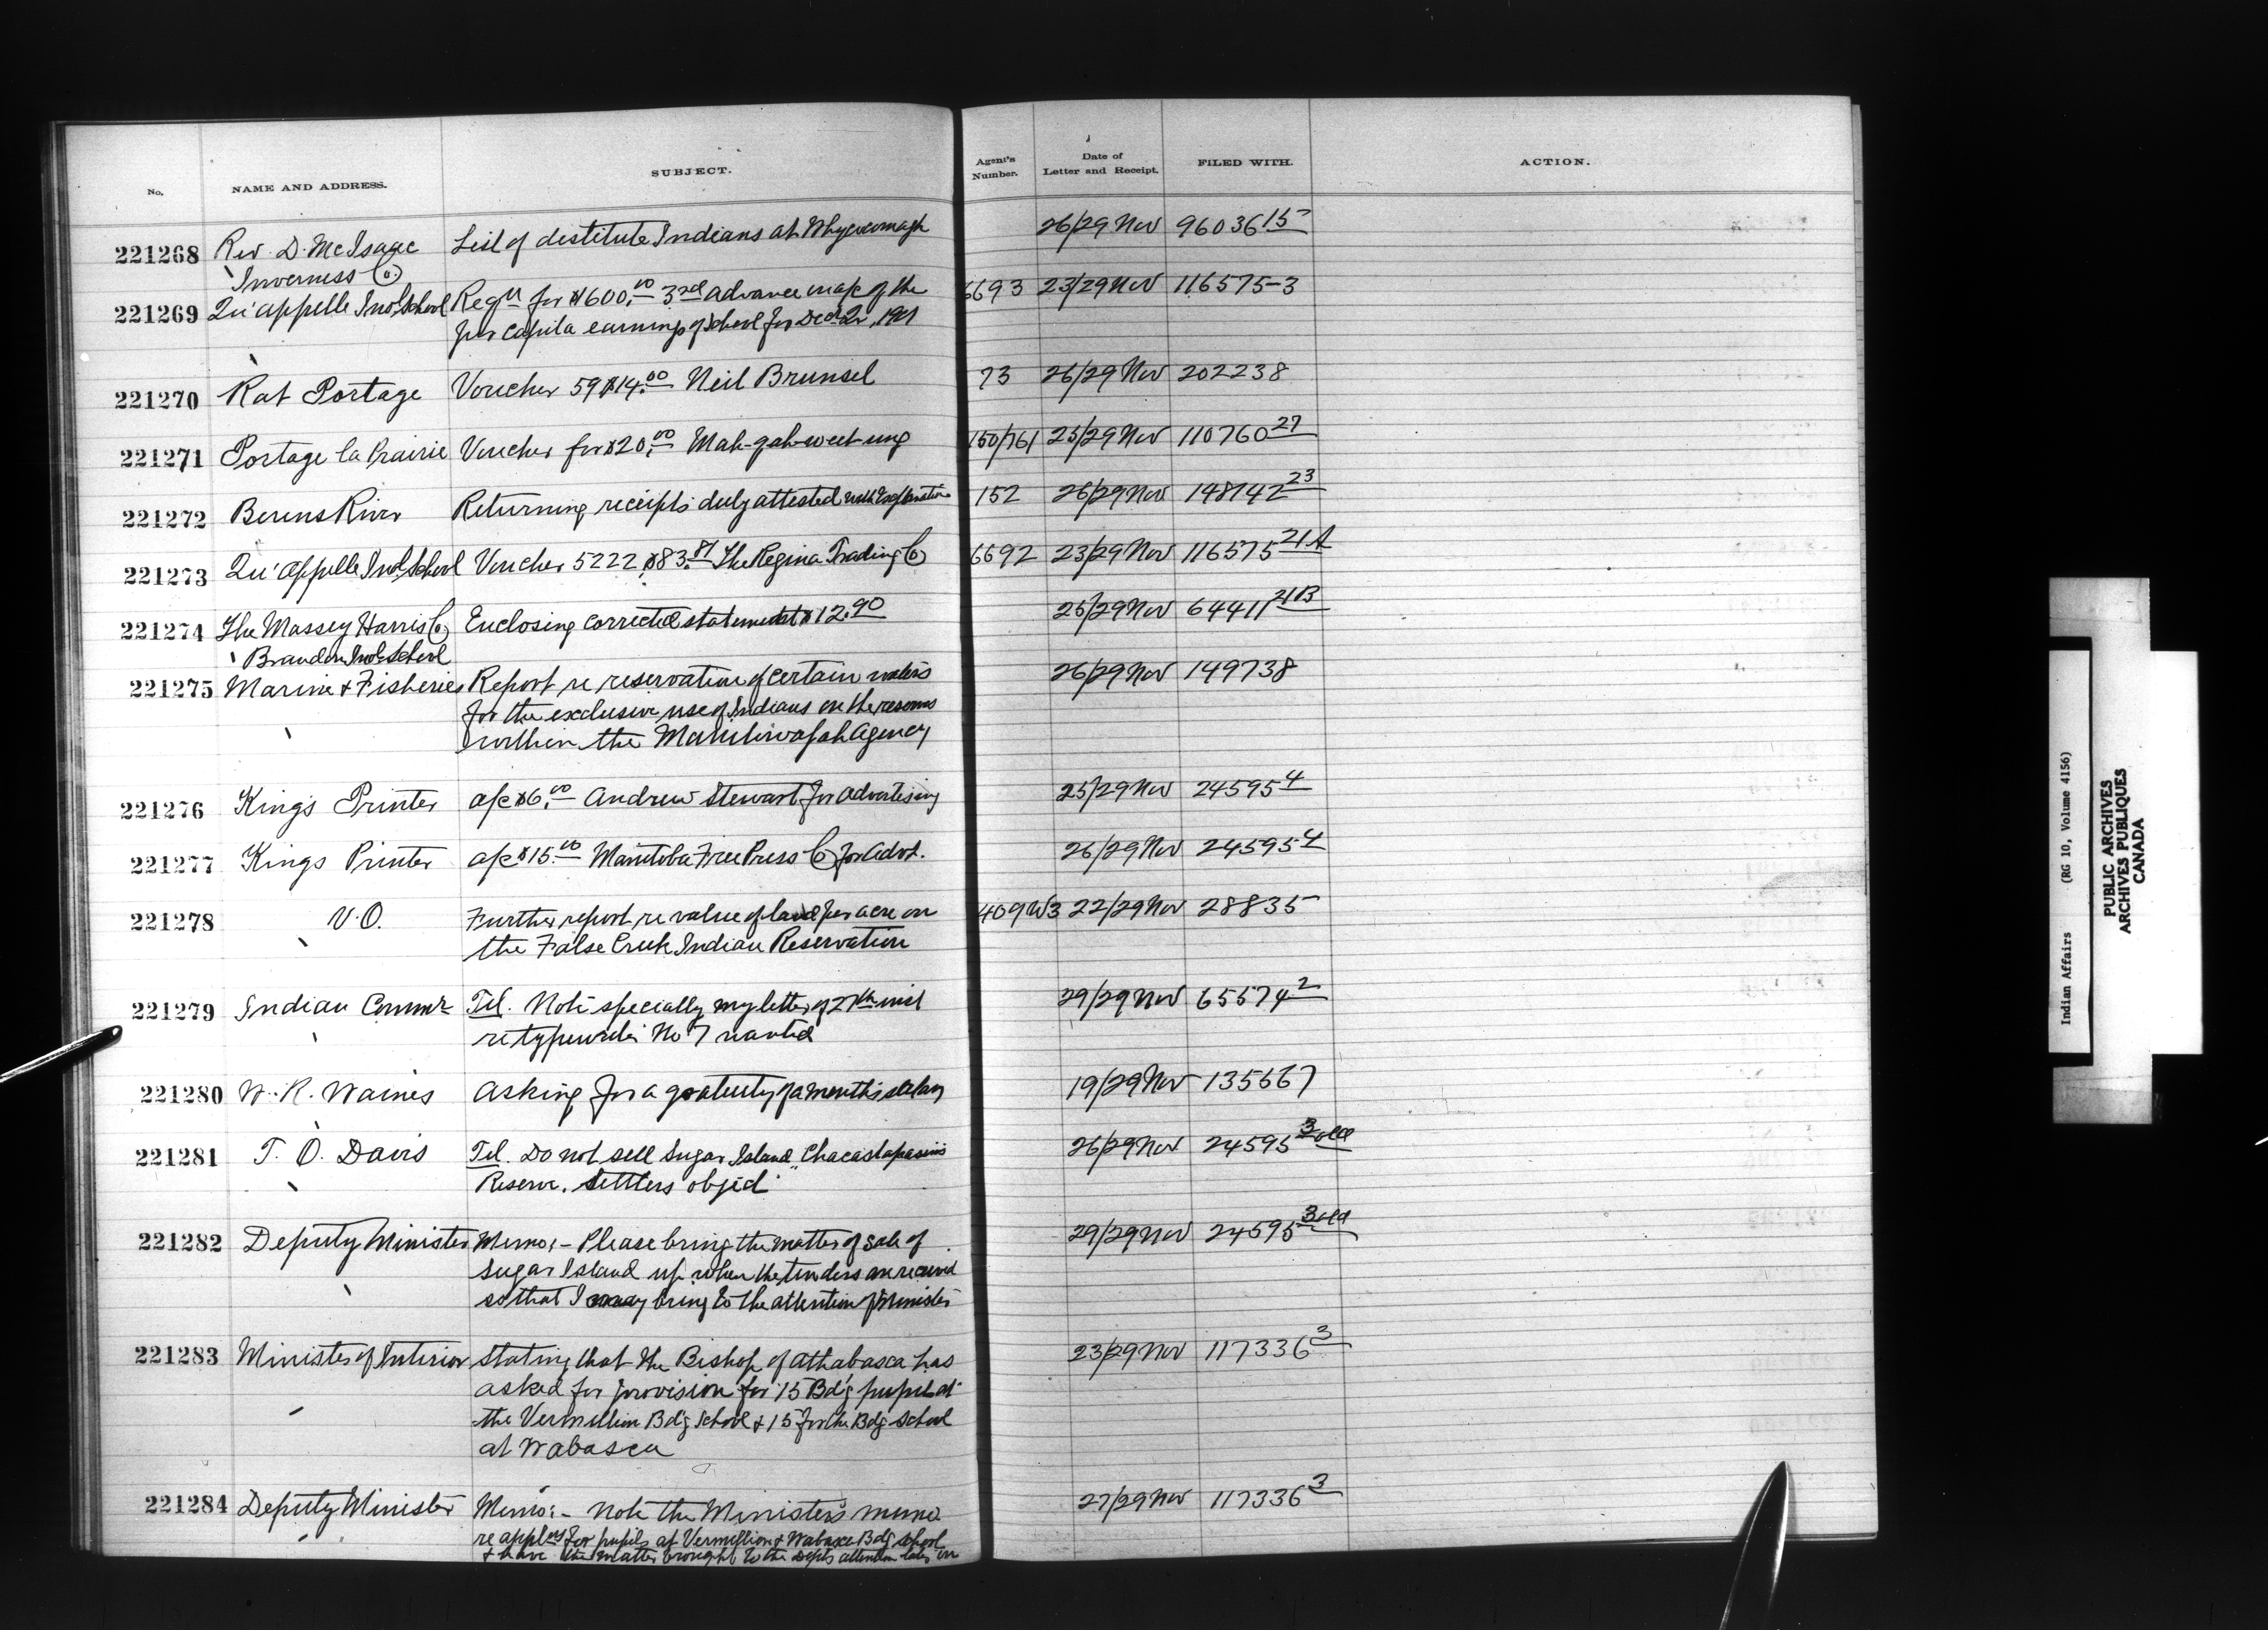 No. NAME AND ADDRESS. SUBJECT. Agent's Number. Date of Letter and Receipt. FILED WITH. ACTION.
221268 Rev. D. McIsaac List of destitute Indians at Whycocomagh 26/29 Nov 96036 15
Inverness Co.
221269 Qu'appelle Indl School Reqn for $600.00 3rd advance on a/c of the 6693 23/29 Nov 116575-3
per capita earnings of School for Dec Qr, 1901
221270 Rat Portage Voucher 59 $14.00 Neil Brunsel 73 26/29 Nov 202238
221271 Portage la Prairie Voucher for $20.00 Mah-gah-weet-ung 150/761 25/29 Nov 110760 27
221272 Berens River Returning receipts duly attested with Explanation 152 26/29 Nov 148742 23
221273 Qu'Appelle Indl School Voucher 5222 $83.81 The Regina Trading Co 6692 23/29 Nov 116575 21A
221274 The Massey Harris Co Enclosing corrected statement $12.90 25/29 Nov 64411 21B
Brandon Indl School
221275 Marine & Fisheries Report re reservation of certain waters 26/29 Nov 149738
for the exclusive use of Indians on the reserves
within the Manitowapah Agency
221276 King's Printer a/c $6.00 Andrew Stewart for advertising 25/29 Nov 24595 4
221277 Kings Printer a/c $15.00 Manitoba Free Press Co for Advt. 26/29 Nov 24595 4
221278 V.O. Further report re value of land per acre on 409 W3 22/29 Nov 28835
the False Creek Indian Reservation
221279 Indian Commr Tel. Note specially my letter of 27th inst 29/29 Nov 65574 2
re typewriter No 7 wanted
221280 W. R. Waines Asking for a gratuity of a month's salary 19/29 Nov 135667
221281 T. O. Davis Tel. Do not sell Sugar Island "Chacastapasin's 26/29 Nov 24595 3 old
Reserve. Settlers object"
221282 Deputy Minister Memo:- Please bring the matter of sale of 29/29 Nov 24595 3 old
Sugar Island up when the tenders are received
so that I may bring to the attention of Minister
221283 Minister of Interior Stating that the Bishop of Athabasca has 23/29 Nov 117336 3
asked for provision for 15 Bd'g pupils at
the Vermillion Bd'g School & 15 for the Bdg School
at Wabasca
221284 Deputy Minister Memo:- Note the Minister's memo 27/29 Nov 117336 3
re applns for pupils at Vermillion & Wabasca Bdg school
& have the matter brought to the Depts attention later on
Indian Affairs (RG 10, Volume 4156)
PUBLIC ARCHIVES
ARCHIVES PUBLIQUES
CANADA